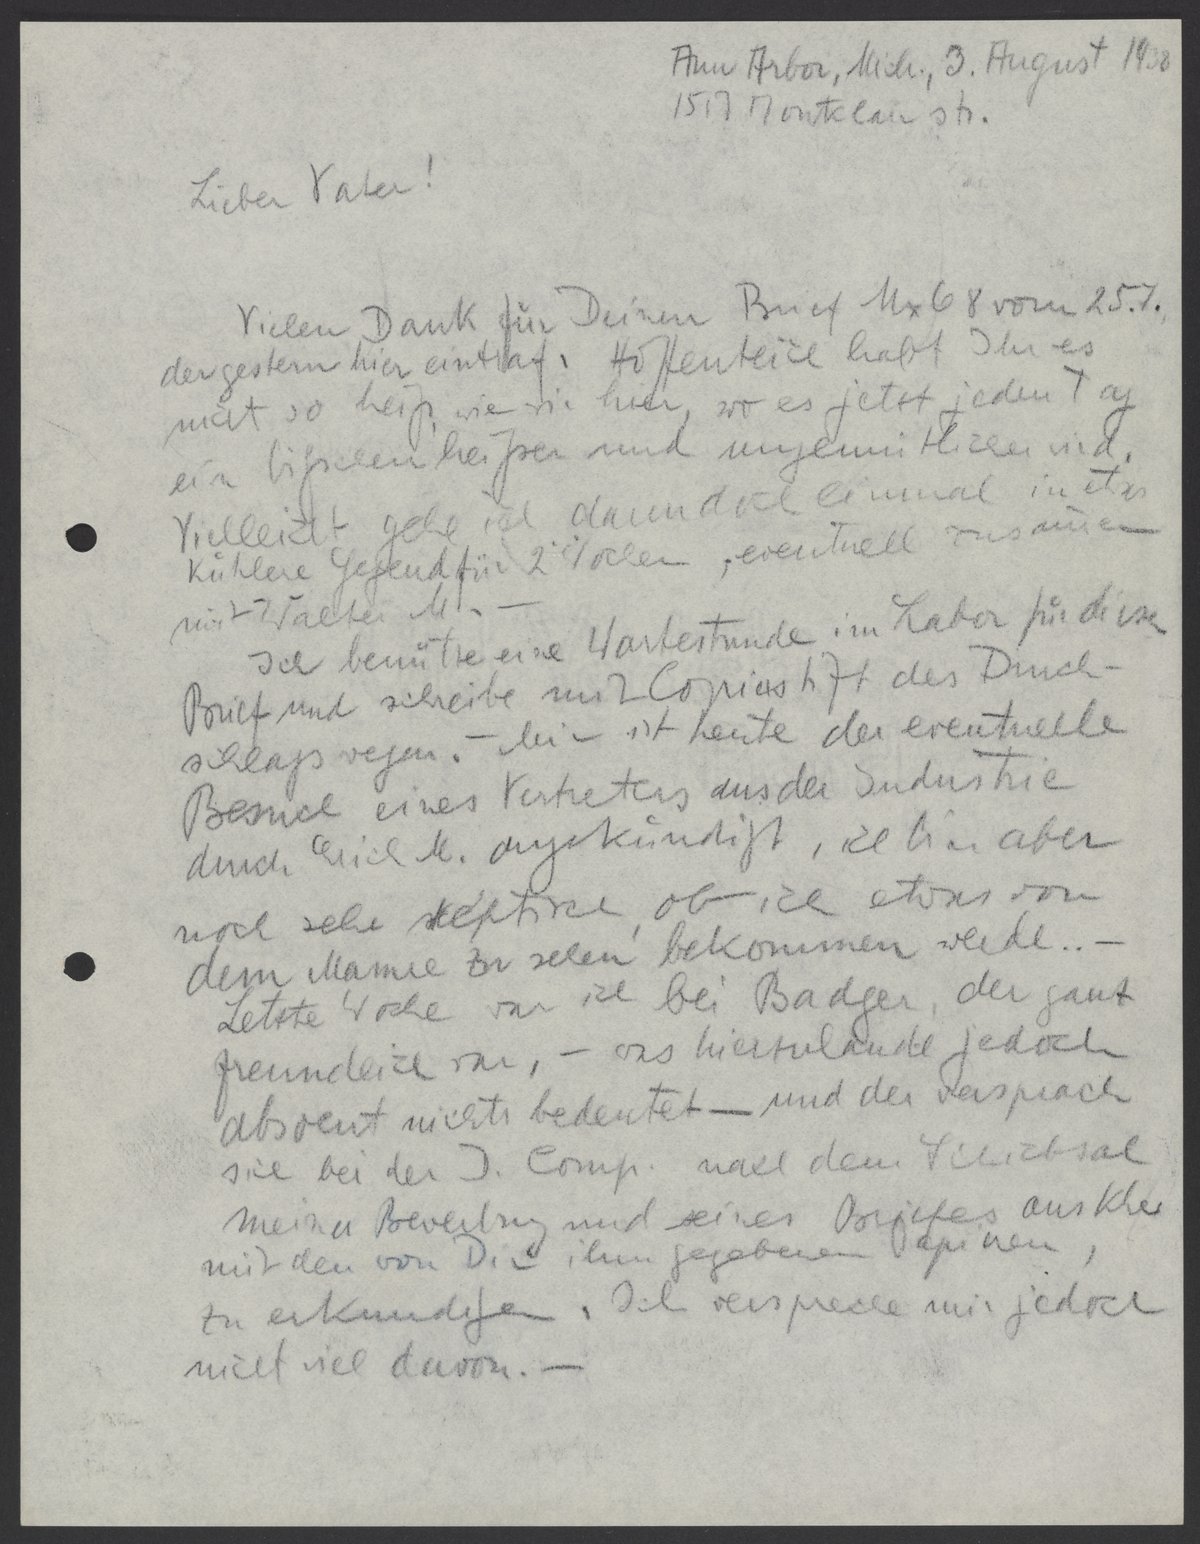 Ann Arbor, Mich., 3. August 1938
1517 Montclair str.
Lieber Vater!
Vielen Dank für Deinen Brief 68 vom 25.7.,
der gestern hier eintraf. Hoffentlich habt Ihr es
nicht so heiß, wie wir hier, wo es jetzt jeden Tag
ein bißchen heißer und ungemütlicher wird.
Vielleicht gehe ich dann doch einmal in etwas
kühlere Gegend für 2 Wochen, eventuell zusammen
mit Walter M. —
Ich benütze eine Wartestunde im Labor für diesen
Brief und schreibe mit Copierstift des Durch-
schlags wegen. — Mir ist heute der eventuelle
Besuch eines Vertreters aus der Industrie
durch Erich M. angekündigt, ich bin aber
noch sehr skeptisch, ob ich etwas von
dem Manne zu sehen bekommen werde.. —
Letzte Woche war ich bei Badger, der ganz
freundlich war, — was hierzulande jedoch
absolut nichts bedeutet — und der versprach
sich bei der D. Comp. nach dem Schicksal
meiner Bewerbung und seines Briefes
mit den von Dir ihm gegebenen Papieren,
zu erkundigen. Ich verspreche mir jedoch
nicht viel davon. —